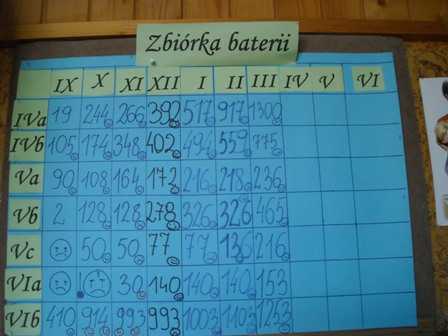 Zbiórka baterii
IX X XI XII I II III IV V VI
IVa 19 244 266 392 517 917 1300
IVb 105 174 348 402 494 559 775
Va 90 108 164 172 216 218 236
Vb 2 128 128 278 326 326 465
Vc 50 50 77 77 136 216
VIa 30 140 140 140 153
VIb 410 914 993 993 1003 1103 1253